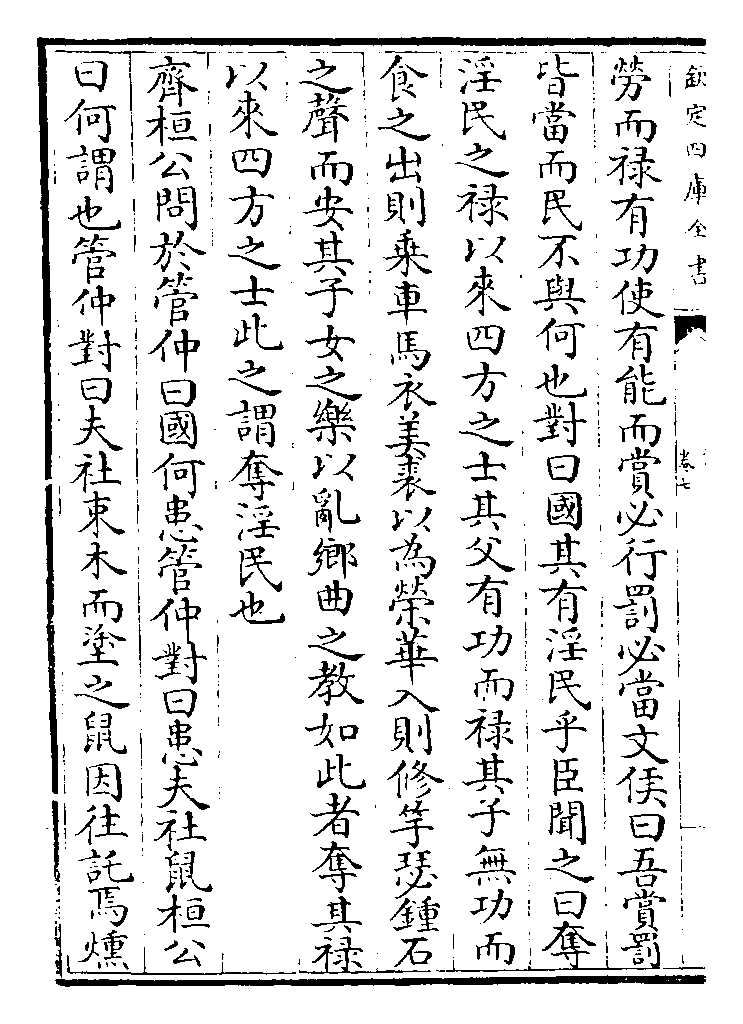 欽定四庫全書
卷七
勞而祿有功使有能而賞必行罰必當文侯曰吾賞罰
皆當而民不與何也對曰國其有淫民乎臣聞之曰奪
淫民之祿以來四方之士其父有功而祿其子無功而
食之出則乗車馬衣美裘以為榮華入則修竽瑟鍾石
之聲而安其子女之樂以亂鄉曲之教如此者奪其祿
以來四方之士此之謂奪淫民也
齊桓公問於管仲曰國何患管仲對曰患夫社鼠桓公
曰何謂也管仲對曰夫社束木而塗之鼠因往託焉燻